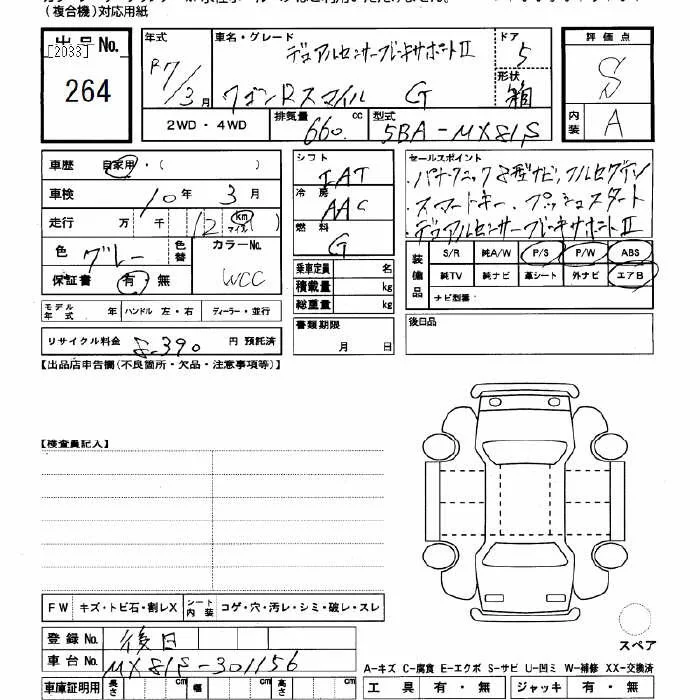 (複合機)対応用紙
出品No.
[2033]
264
年式
R7/3月
車名・グレード
デュアルセンサーブレーキサポートⅡ
ワゴンRスマイル G
ドア
5
形状
箱
2WD・4WD
排気量
660 cc
型式
5BA-MX81S
評価点
S
内装
A
車歴 自家用・( )
車検 10年 3月
走行 万 千 12 km マイル
色 グレー 色替
カラーNo.
WCC
保証書 有・無
モデル年式 年 ハンドル 左・右 ディーラー・並行
リサイクル料金 8.390 円 預託済
シフト
IAT
冷房
AAC
燃料
G
乗車定員 名
積載量 kg
総重量 kg
書類期限
月 日
セールスポイント
・パナソニック8型ナビ、フルセグテレビ
・スマートキー、プッシュスタート
・デュアルセンサーブレーキサポートⅡ
装備品
S/R 純A/W P/S P/W ABS
純TV 純ナビ 革シート 外ナビ エアB
ナビ型番:
後日品
【出品店申告欄(不良箇所・欠品・注意事項等)】
【検査員記入】
FW キズ・トビ石・割レX シート内装 コゲ・穴・汚レ・シミ・破レ・スレ
登録No. 後日
車台No. MX81S-301156
車庫証明用 長さ cm 幅 cm 高さ cm
スペア
A-キズ C-腐食 E-エクボ S-サビ U-凹ミ W-補修 XX-交換済
工具 有・無 ジャッキ 有・無